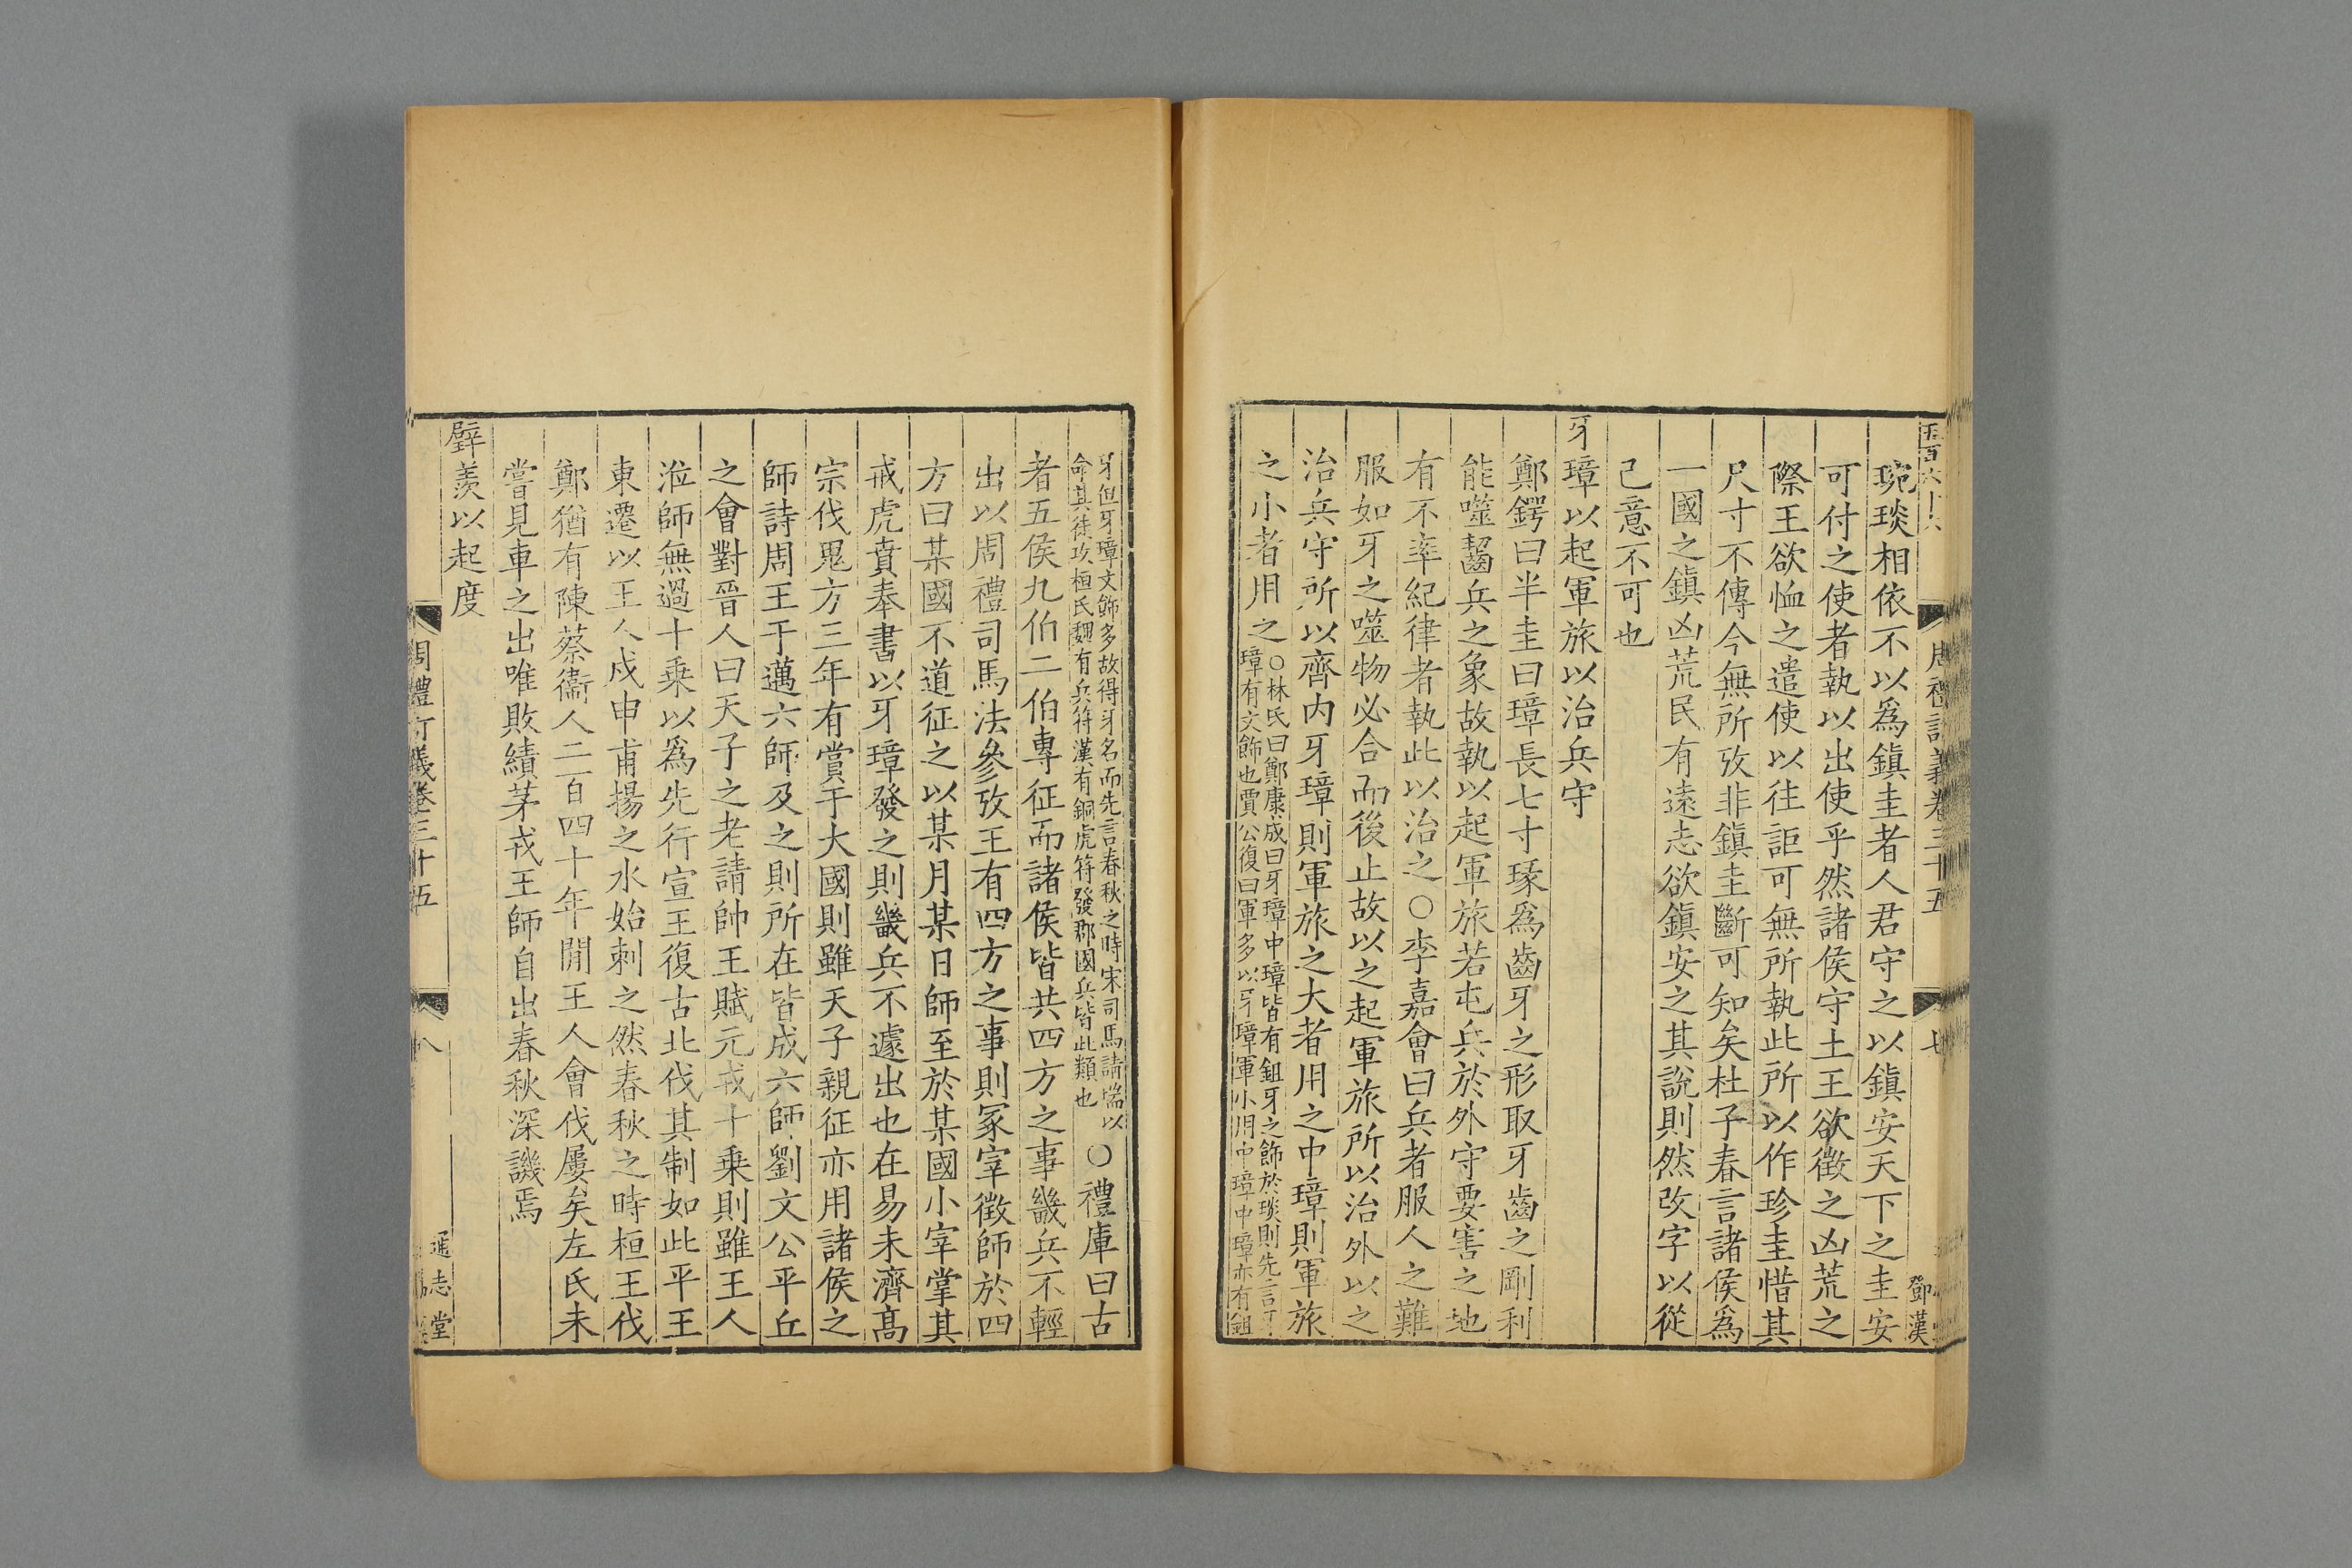 琬琰相依不以爲鎭圭者人君守之以鎭安天下之圭安
可付之使者執以出使乎然諸侯守土王欲徵之凶荒之
際王欲恤之遣使以往詎可無所執此所以作珍圭惜其
尺寸不傳今無所攷非鎭圭斷可知矣杜子春言諸侯爲
一國之鎭凶荒民有遠志欲鎭安之其說則然改字以從
己意不可也
牙璋以起軍旅以治兵守
鄭鍔曰半圭曰璋長七寸瑑爲齒牙之形取牙齒之剛利
能噬齧兵之象故執以起軍旅若屯兵於外守要害之地
有不率紀律者執此以治之○李嘉會曰兵者服人之難
服如牙之噬物必合而後止故以之起軍旅所以治外以之
治兵守所以齊内牙璋則軍旅之大者用之中璋則軍旅
之小者用之
○林氏曰鄭康成曰牙璋中璋皆有鉏牙之飾於琰則先言牙
璋有文飾也賈公復曰軍多以牙璋軍小用中璋中璋亦有鉏
周禮訂義卷三十五
七
鄧漢
牙但牙璋文飾多故得牙名而先言春秋之時宋司馬請瑞以
命其徒攻桓氏魏有兵符漢有銅虎符發郡國兵皆此類也
○禮庫曰古
者五侯九伯二伯專征而諸侯皆共四方之事畿兵不輕
出以周禮司馬法參攷王有四方之事則冢宰徵師於四
方曰某國不道征之以某月某日師至於某國小宰掌其
戒虎賁奉書以牙璋發之則畿兵不遽出也在易未濟高
宗伐鬼方三年有賞于大國則雖天子親征亦用諸侯之
師詩周王于邁六師及之則所在皆成六師劉文公平丘
之會對晉人曰天子之老請帥王賦元戎十乗則雖王人
涖師無過十乗以爲先行宣王復古北伐其制如此平王
東遷以王人戍申甫揚之水始刺之然春秋之時桓王伐
鄭猶有陳蔡衞人二百四十年閒王人會伐屢矣左氏未
嘗見車之出唯敗績茅戎王師自出春秋深譏焉
璧羨以起度
周禮訂義卷三十五
八
通志堂